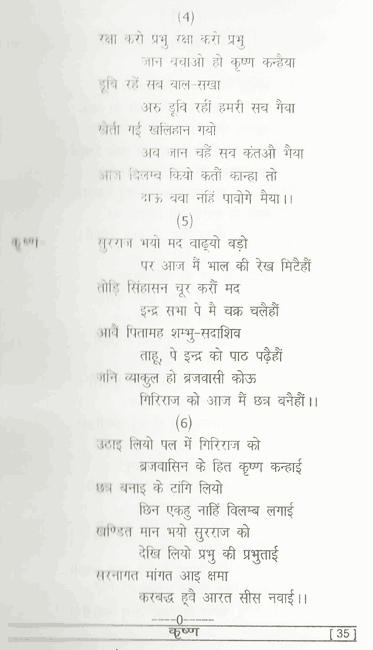 (4)
रक्षा करो प्रभु रक्षा करो प्रभु
जान बचाओ हो कृष्ण कन्हैया
डूबि रहें सब वाल-सखा
अरु डूबि रहीं हमरी सब गैया
खेती गई खलिहान गयो
अब जान चहें सब कंतऔ भैया
आज विलम्ब कियो कतौं कान्हा तो
दाऊ बबा नहिं पावोगे मैया।।
(5)
कृष्ण- सुरराज भयो मद वाढ्यो बड़ो
पर आज मैं भाल की रेख मिटैहौं
तोड़ि सिंहासन चूर करौं मद
इन्द्र सभा पे मै चक्र चलैहौं
आवैं पितामह शम्भु-सदाशिव
ताहू, पे इन्द्र को पाठ पढ़ैहौं
जनि व्याकुल हो ब्रजवासी कोऊ
गिरिराज को आज मैं छत्र बनैहौं।।
(6)
उठाइ लियो पल में गिरिराज को
ब्रजवासिन के हित कृष्ण कन्हाई
छत्र बनाइ के टांगि लियो
छिन एकहु नाहिं विलम्ब लगाई
खण्डित मान भयो सुरराज को
देखि लियो प्रभु की प्रभुताई
सरनागत मांगत आइ क्षमा
करबद्ध ह्वै आरत सीस नवाई।।
----0----
कृष्ण [ 35 ]